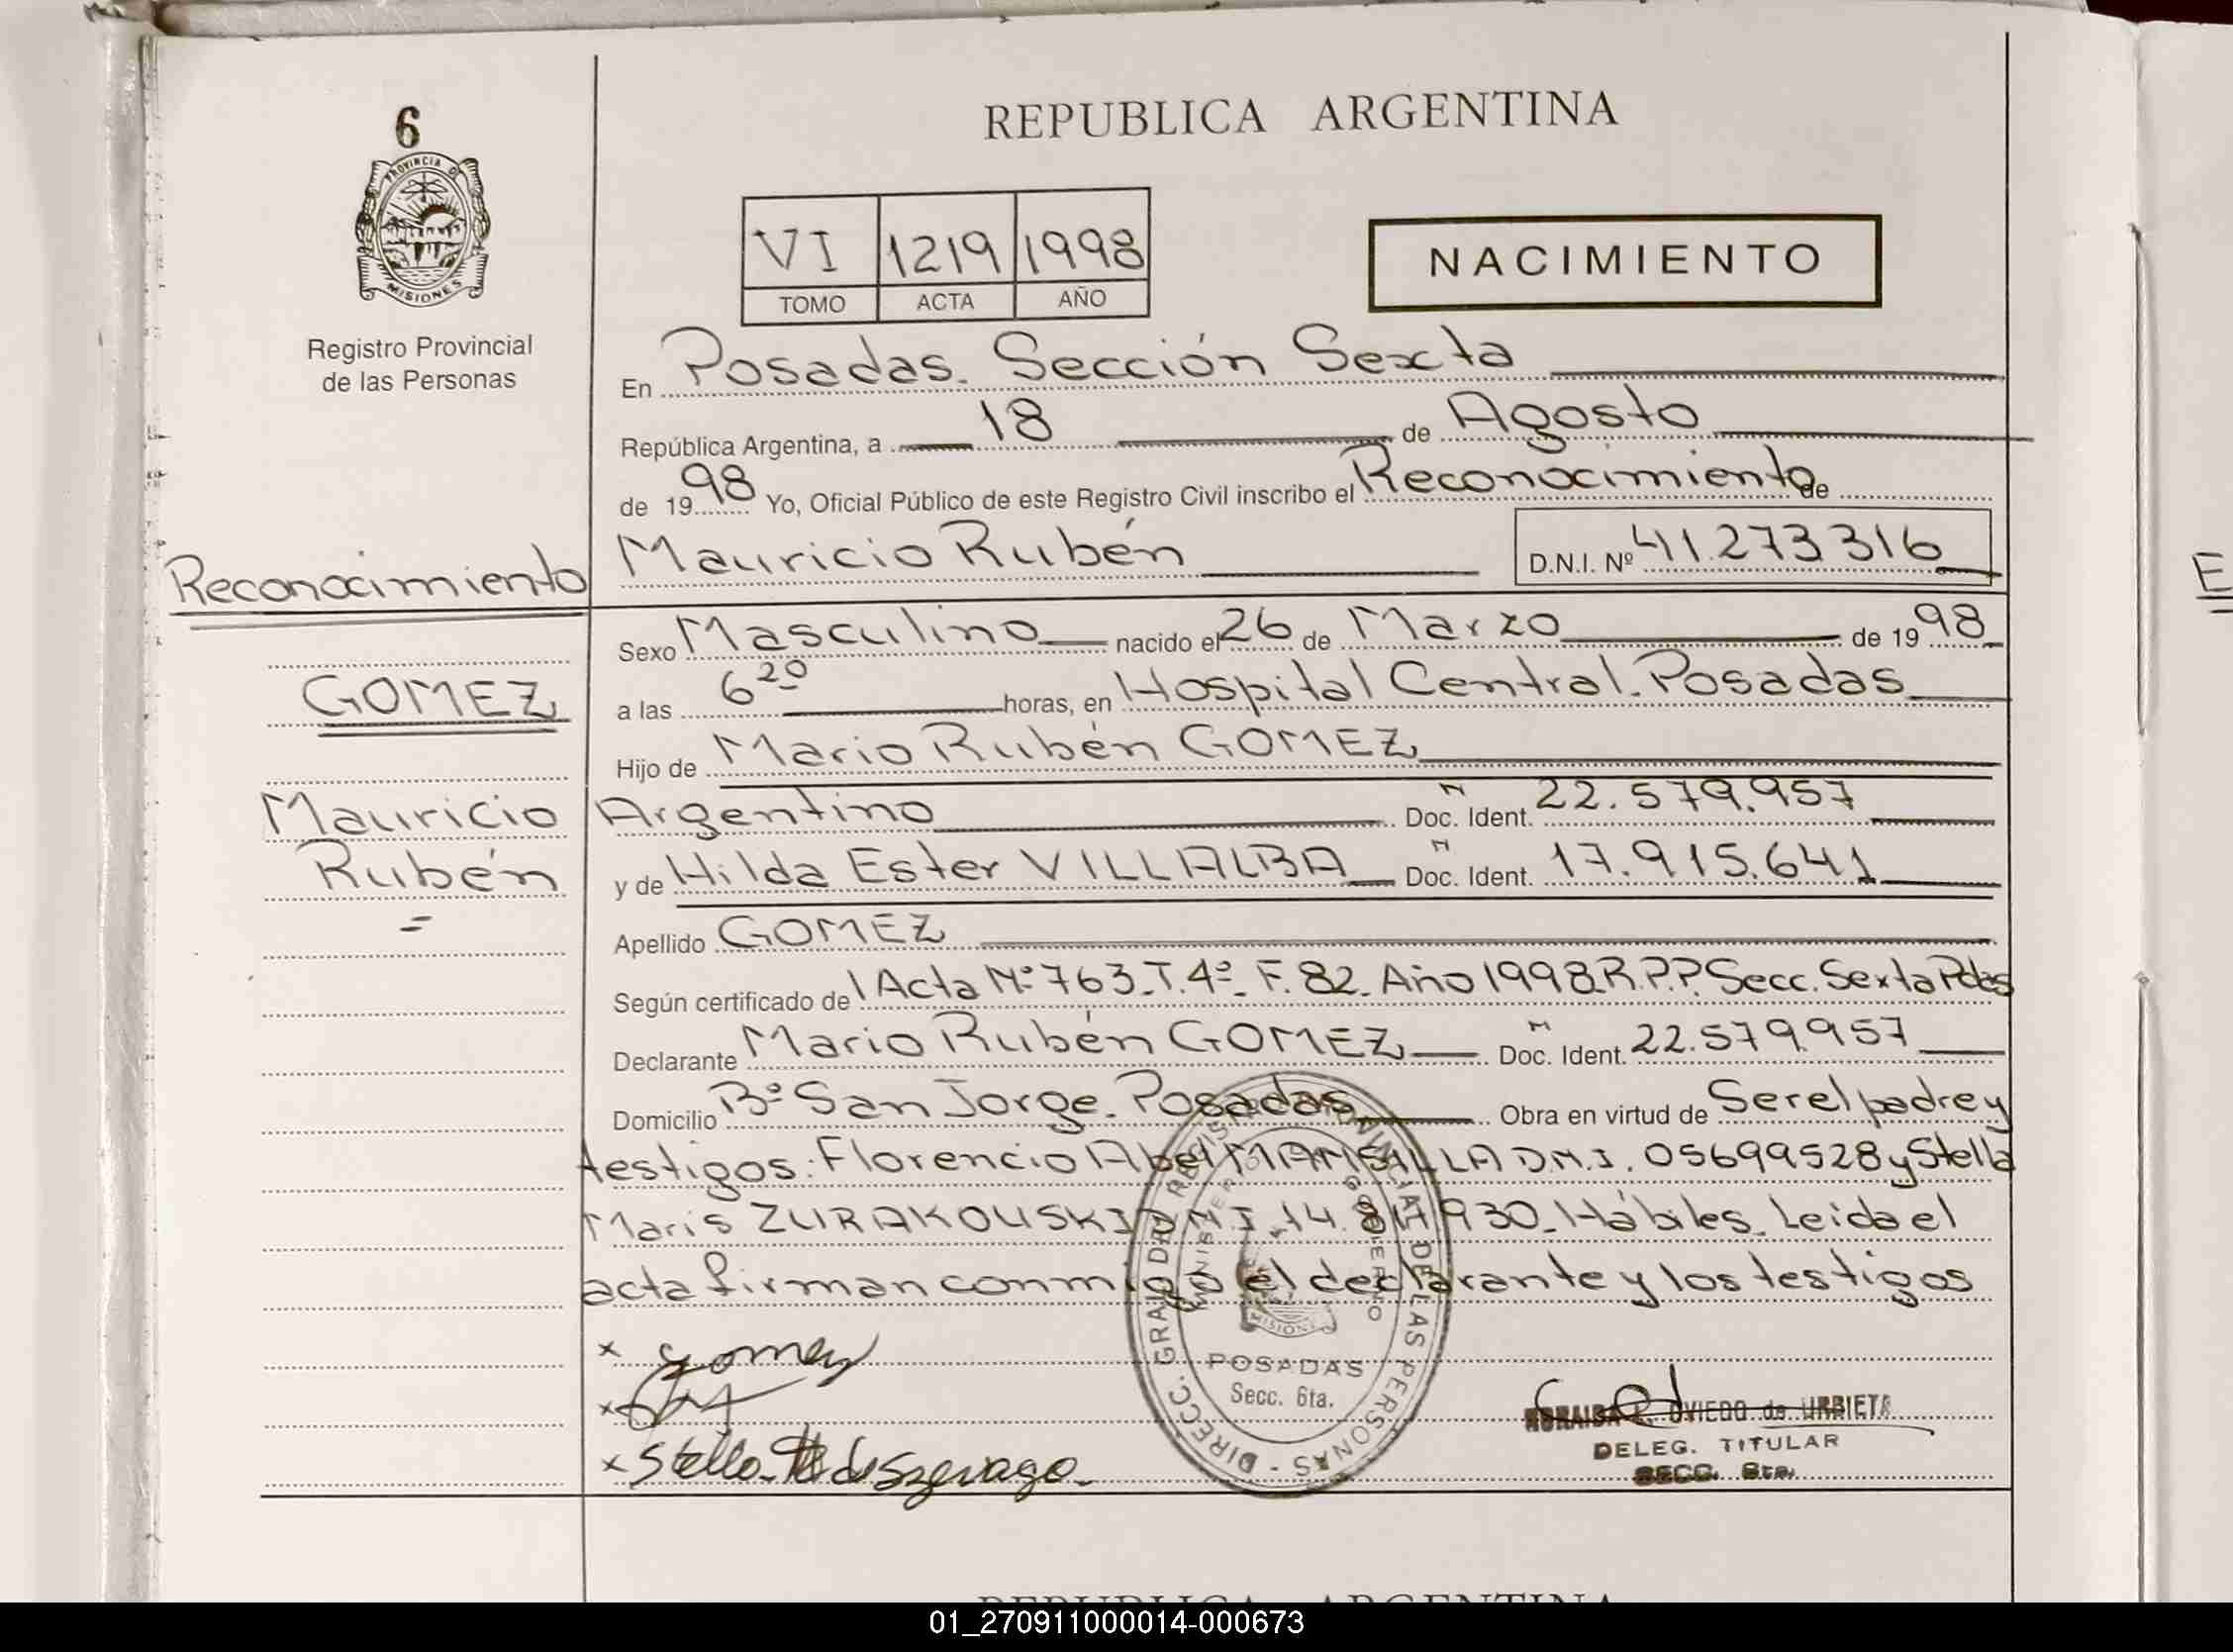 6
PROVINCIA D
MISIONES
Registro Provincial
de las Personas
REPUBLICA ARGENTINA
VI 1219 1998
TOMO ACTA AÑO
NACIMIENTO
En Posadas. Sección Sexta
República Argentina, a 18 de Agosto
de 1998 Yo, Oficial Público de este Registro Civil inscribo el Reconocimiento de
Mauricio Rubén D.N.I. Nº 41.273.316
Reconocimiento
GOMEZ
Mauricio
Rubén
Sexo Masculino nacido el 26 de Marzo de 1998
a las 6 20 horas, en Hospital Central. Posadas
Hijo de Mario Rubén GOMEZ
Argentino Doc. Ident. 22.579.957
y de Hilda Ester VILLALBA Doc. Ident. 17.915.641
Apellido GOMEZ
Según certificado de Acta Nº 763. T. 4º. F. 82. Año 1998 R.P.P. Secc. Sexta Pdas
Declarante Mario Rubén GOMEZ Doc. Ident. 22.579.957
Domicilio Bº San Jorge. Posadas Obra en virtud de Ser el padre y
testigos: Florencio Abel MANSILLA D.N.I. 05699528 y Stella
Maris ZURAKOUSKI D.N.I. 14. 930. Hábiles. Leida el
acta firman conmigo el declarante y los testigos
x gomez
x
x Stella
DIRECC. GRAL DEL REGISTRO PROVINCIAL DE LAS PERSONAS
MINISTERIO GOBIERNO
MISIONES
POSADAS
Secc. 6ta.
OVIEDO de URBIETA
DELEG. TITULAR
SECC. 6ta.
E
REPUBLICA ARGENTINA
01_270911000014-000673